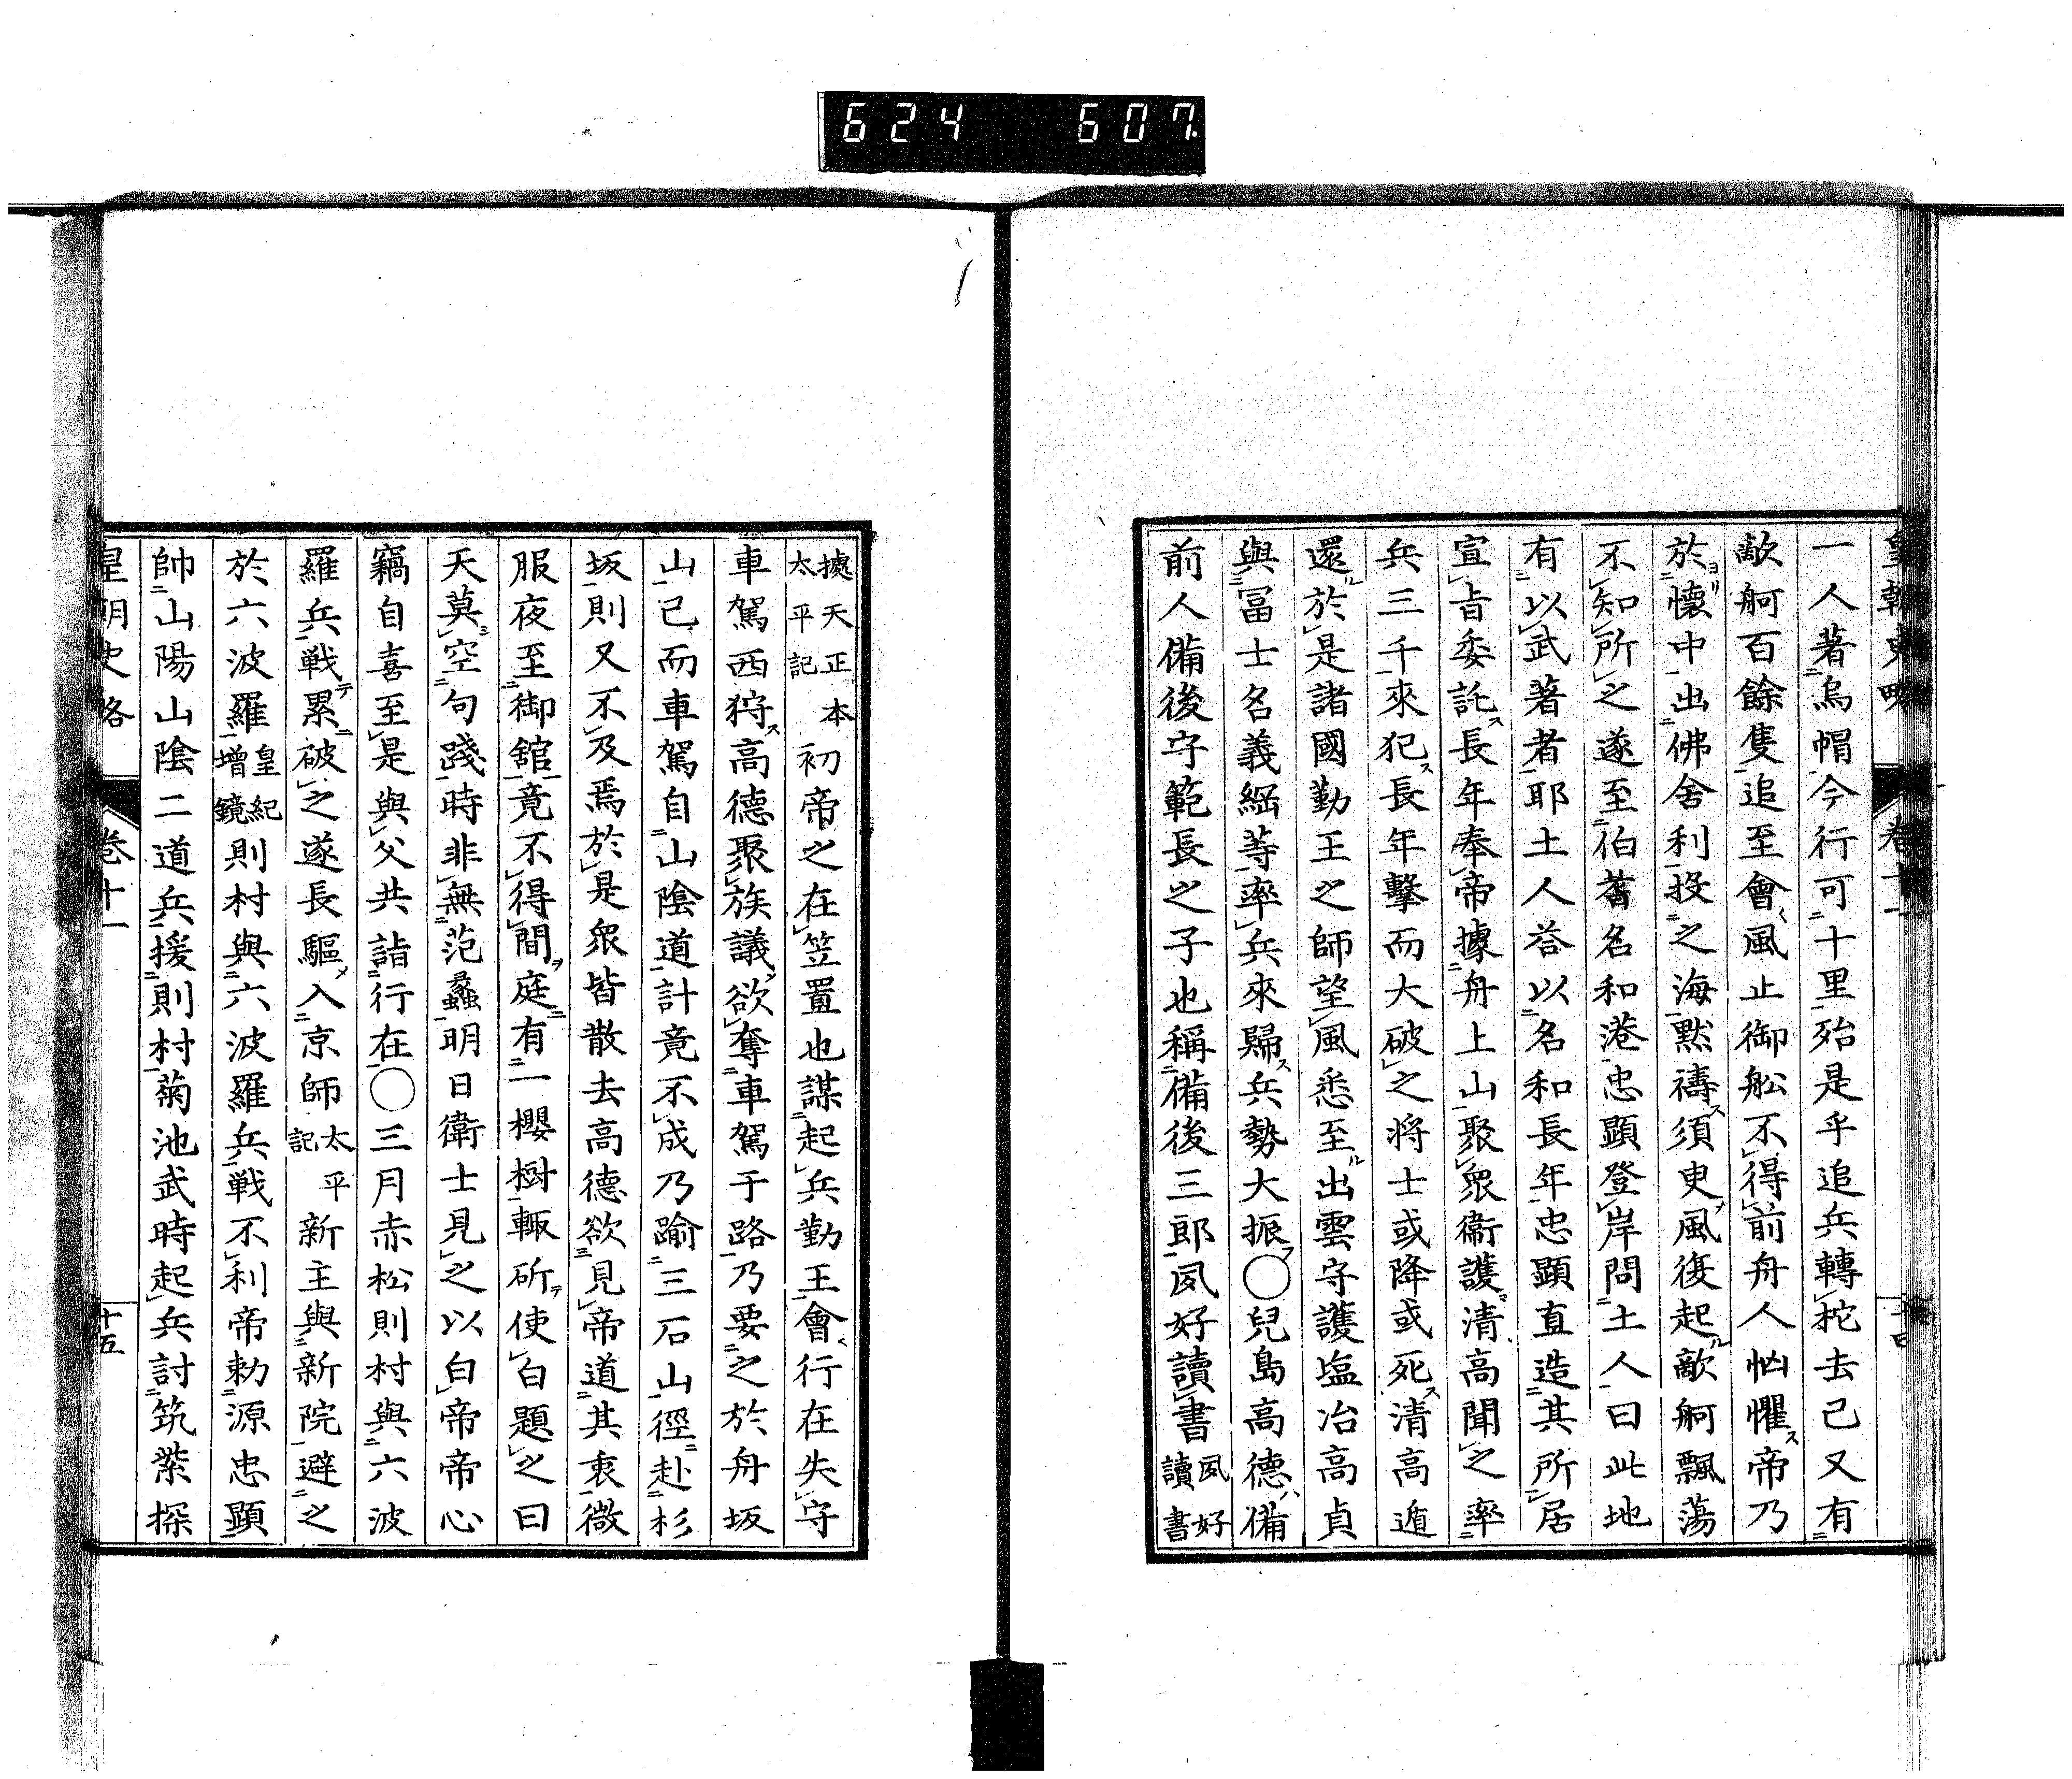 624 607
皇朝史略 卷十一 十四
一人著烏帽今行可十里殆是乎追兵轉柁去已又有
敵舸百餘隻追至會風止御舩不得前舟人恟懼帝乃
於懷中出佛舍利投之海默禱須臾風復起敵舸飄蕩
不知所之遂至伯耆名和港忠顯登岸問土人曰此地
有以武著者耶土人答以名和長年忠顯直造其所居
宣旨委託長年奉帝據舟上山聚眾衞護清高聞之率
兵三千來犯長年擊而大破之将士或降或死清高遁
還於是諸國勤王之師望風悉至出雲守護塩冶高貞
與冨士名義綱等率兵來歸兵勢大振〇兒島高德備
前人備後守範長之子也稱備後三郎夙好讀書夙好讀書
據天正本太平記初帝之在笠置也謀起兵勤王會行在失守
車駕西狩高德聚族議欲奪車駕于路乃要之於舟坂
山已而車駕自山陰道計竟不成乃踰三石山徑赴杉
坂則又不及焉於是眾皆散去高德欲見帝道其衷微
服夜至御舘竟不得間庭有一櫻樹輙斫使白題之曰
天莫空句踐時非無范蠡明日衛士見之以白帝帝心
竊自喜至是與父共詣行在〇三月赤松則村與六波
羅兵戦累破之遂長驅入京師太平記新主與新院避之
於六波羅皇紀增鏡則村與六波羅兵戦不利帝勅源忠顯
帥山陽山陰二道兵援則村菊池武時起兵討筑紫探
皇朝史略 卷十一 十五